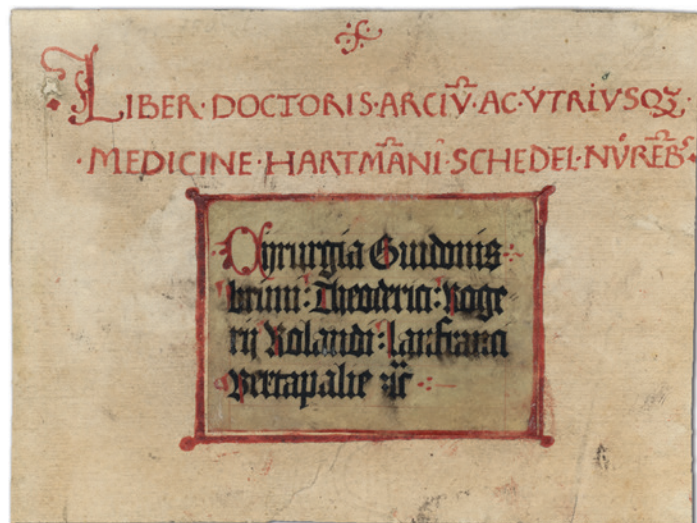 LIBER·DOCTORIS·ARCIV̄·AC·VTRIVSQꝫ·
·MEDICINE·HARTMĀNI·SCHEDEL·NVREB̄·
Chirurgia Guidonis
bruni: Theoderici: Roge
rij Rolandi: lanfranci
Bertapalie ⁊c̄